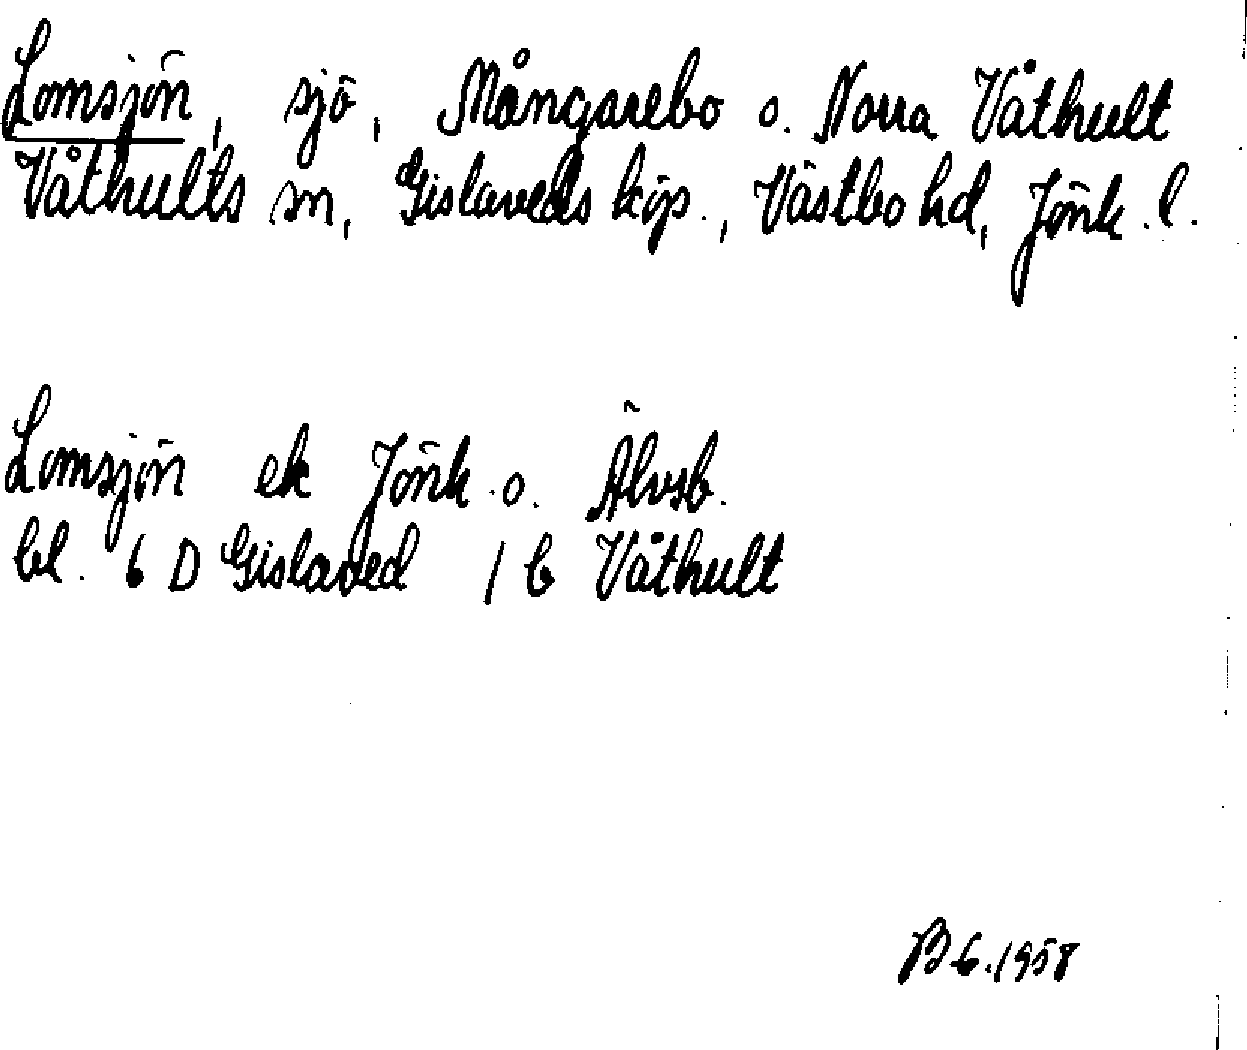 Lomsjön, sjö, Mångarebo o. Norra Våthult
Våthults sn, Gislaveds köp., Västbo hd, Jönk. l.
Lomsjön ek Jönk. o. Älvsb.
bl. 6 D Gislaved 1 b Våthult
B 6.1958